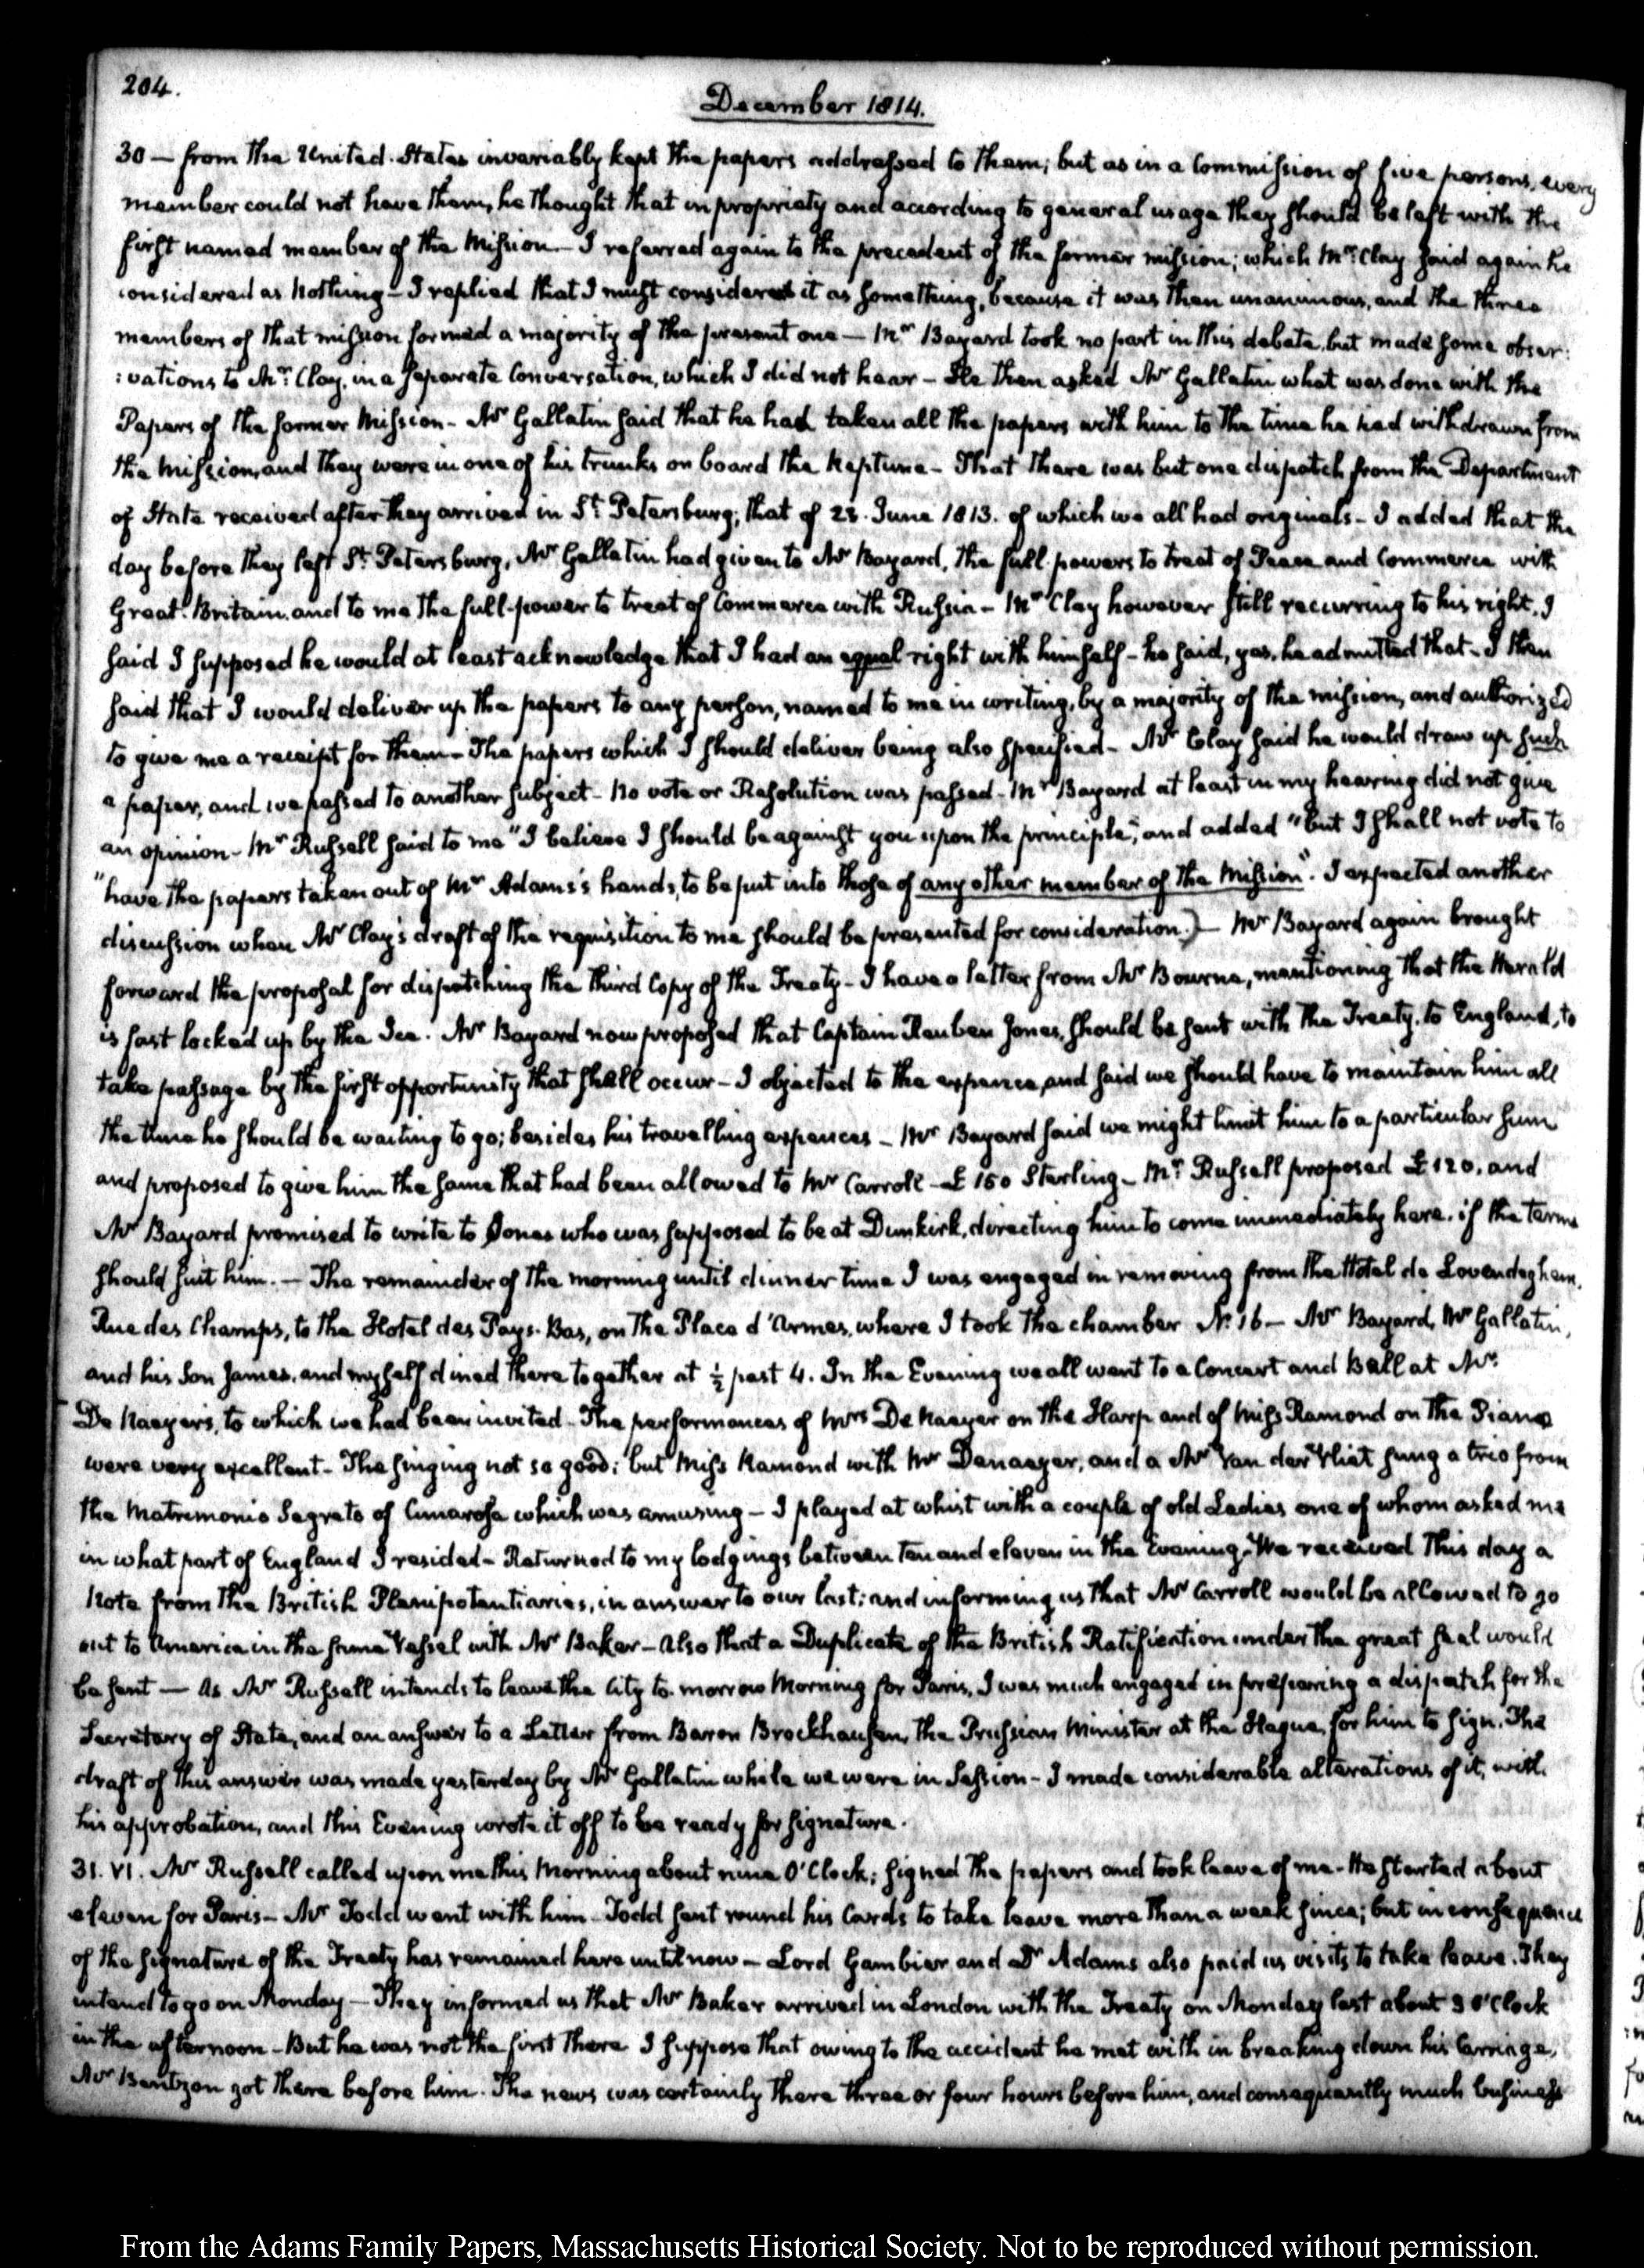 204.
December 1814.
30 — from the United States invariably kept the papers addressed to them; but as in a Commission of five persons, every
member could not have them, he thought that in propriety and according to general usage they should be left with the
first named member of the Mission — I referred again to the precedent of the former mission; which Mr. Clay said again he
considered as nothing — I replied that I must considered it as something, because it was then unanimous, and the three
members of that mission formed a majority of the present one — Mr Bayard took no part in this debate, but made some obser:
:vations to Mr. Clay, in a separate Conversation, which I did not hear — He then asked Mr Gallatin what was done with the
Papers of the former Mission — Mr Gallatin said that he had taken all the papers with him to the time he had withdrawn from
the Mission, and they were in one of his trunks on board the Neptune — That there was but one dispatch from the Department
of State received after they arrived in St. Petersburg; that of 23. June 1813. of which we all had originals — I added that the
day before they left St. Petersburg, Mr Gallatin had given to Mr Bayard, the full powers to treat of Peace and Commerce with
Great-Britain, and to me the full-power to treat of Commerce with Russia — Mr Clay however still recurring to his right, I
said I supposed he would at least acknowledge that I had an equal right with himself — he said, yes, he admitted that — I then
said that I would deliver up the papers to any person, named to me in writing, by a majority of the mission, and authorized
to give me a receipt for them — The papers which I should deliver being also specified — Mr Clay said he would draw up such
a paper, and we passed to another subject — No vote or Resolution was passed — Mr Bayard at least in my hearing did not give
an opinion — Mr Russell said to me "I believe I should be against you upon the principle," and added "but I shall not vote to
"have the papers taken out of Mr Adams's hands, to be put into those of any other member of the Mission". I expected another
discussion when Mr Clay's draft of the requisition to me should be presented for consideration.) — Mr Bayard again brought
forward the proposal for dispatching the third Copy of the Treaty — I have a letter from Mr Bourne, mentioning that the Herald
is fast locked up by the Ice. Mr Bayard now proposed that Captain Reuben Jones, should be sent with the Treaty, to England, to
take passage by the first opportunity that shall occur — I objected to the expence, and said we should have to maintain him all
the time he should be waiting to go; besides his travelling expences — Mr Bayard said we might limit him to a particular sum
and proposed to give him the same that had been allowed to Mr Carroll — £150 Sterling — Mr. Russell proposed £120, and
Mr Bayard promised to write to Jones who was supposed to be at Dunkirk, directing him to come immediately here, if the terms
should suit him. — The remainder of the morning until dinner time I was engaged in removing from the Hotel de Lovendeghem,
Rue des Champs, to the Hotel des Pays-Bas, on the Place d'armes, where I took the chamber N. 16 — Mr Bayard, Mr Gallatin,
and his Son James, and myself dined there together at ½ past 4. In the Evening we all went to a Concert and Ball at Mr.
De Naeyer's, to which we had been invited — The performances of Mrs De Naeyer on the Harp and of Miss Ramond on the Piano
were very excellent — The singing not so good; but Miss Ramond with Mr Denaeyer, and a Mr Van der Vliet sung a trio from
the Matrimonio Segreto of Cimarosa which was amusing — I played at whist with a couple of old Ladies one of whom asked me
in what part of England I resided — Returned to my lodgings between ten and eleven in the Evening. We received this day a
Note from the British Plenipotentiaries, in answer to our last; and informing us that Mr Carroll would be allowed to go
out to America in the same Vessel with Mr Baker — Also that a Duplicate of the British Ratification under the great seal would
be sent — As Mr Russell intends to leave the City to-morrow Morning for Paris, I was much engaged in preparing a dispatch for the
Secretary of State, and an answer to a Letter from Baron Brockhausen, the Prussian Minister at the Hague, for him to sign. The
draft of this answer was made yesterday by Mr Gallatin while we were in Session — I made considerable alterations of it, with
his approbation, and this Evening wrote it off to be ready for signature.
31. VI. Mr Russell called upon me this Morning about nine O'Clock; signed the papers and took leave of me — He started about
eleven for Paris — Mr Todd went with him — Todd sent round his Cards to take leave more than a week since; but in consequence
of the signature of the Treaty has remained here until now — Lord Gambier and Dr Adams also paid us visits to take leave. They
intend to go on Monday — They informed us that Mr Baker arrived in London with the Treaty on Monday last about 3 O'Clock
in the afternoon — But he was not the first there I suppose that owing to the accident he met with in breaking down his Carriage,
Mr Bentzon got there before him. The news was certainly there three or four hours before him, and consequently much business
From the Adams Family Papers, Massachusetts Historical Society. Not to be reproduced without permission.